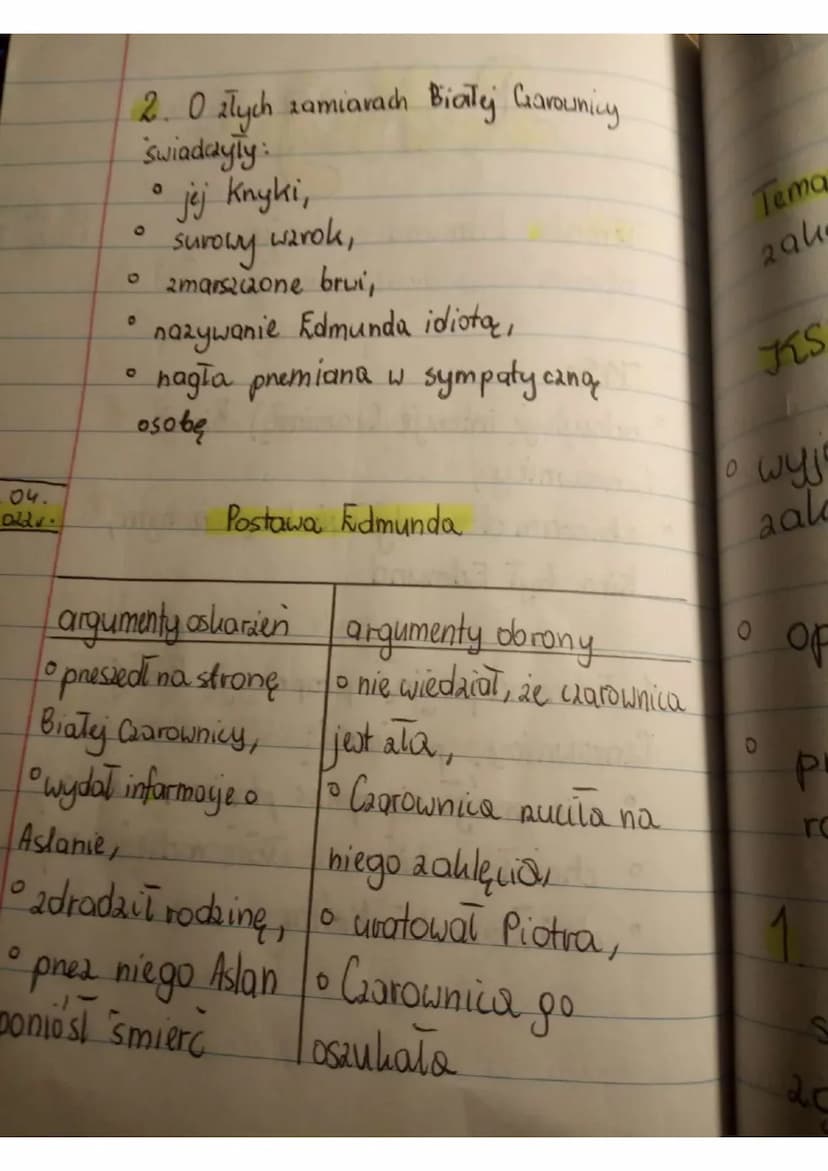 2. O złych zamiarach Białej Czarownicy
świadczyły:
° jej krzyki,
° surowy wzrok,
° zmarszczone brwi,
° nazywanie Edmunda idiotą,
° nagła przemiana w sympatyczną
osobę
04.
022r.
Postawa Edmunda
argumenty oskarżeń
° przeszedł na stronę
Białej Czarownicy,
° wydał informacje o
Aslanie,
° zdradził rodzinę,
° przez niego Aslan
poniósł śmierć
argumenty obrony
° nie wiedział, że czarownica
jest zła,
° Czarownica rzuciła na
niego zaklęcia,
° uratował Piotra,
° Czarownica go
oszukała
Tema
zak
KS
° wyj
zak
° op
° pr
ro
1.
s